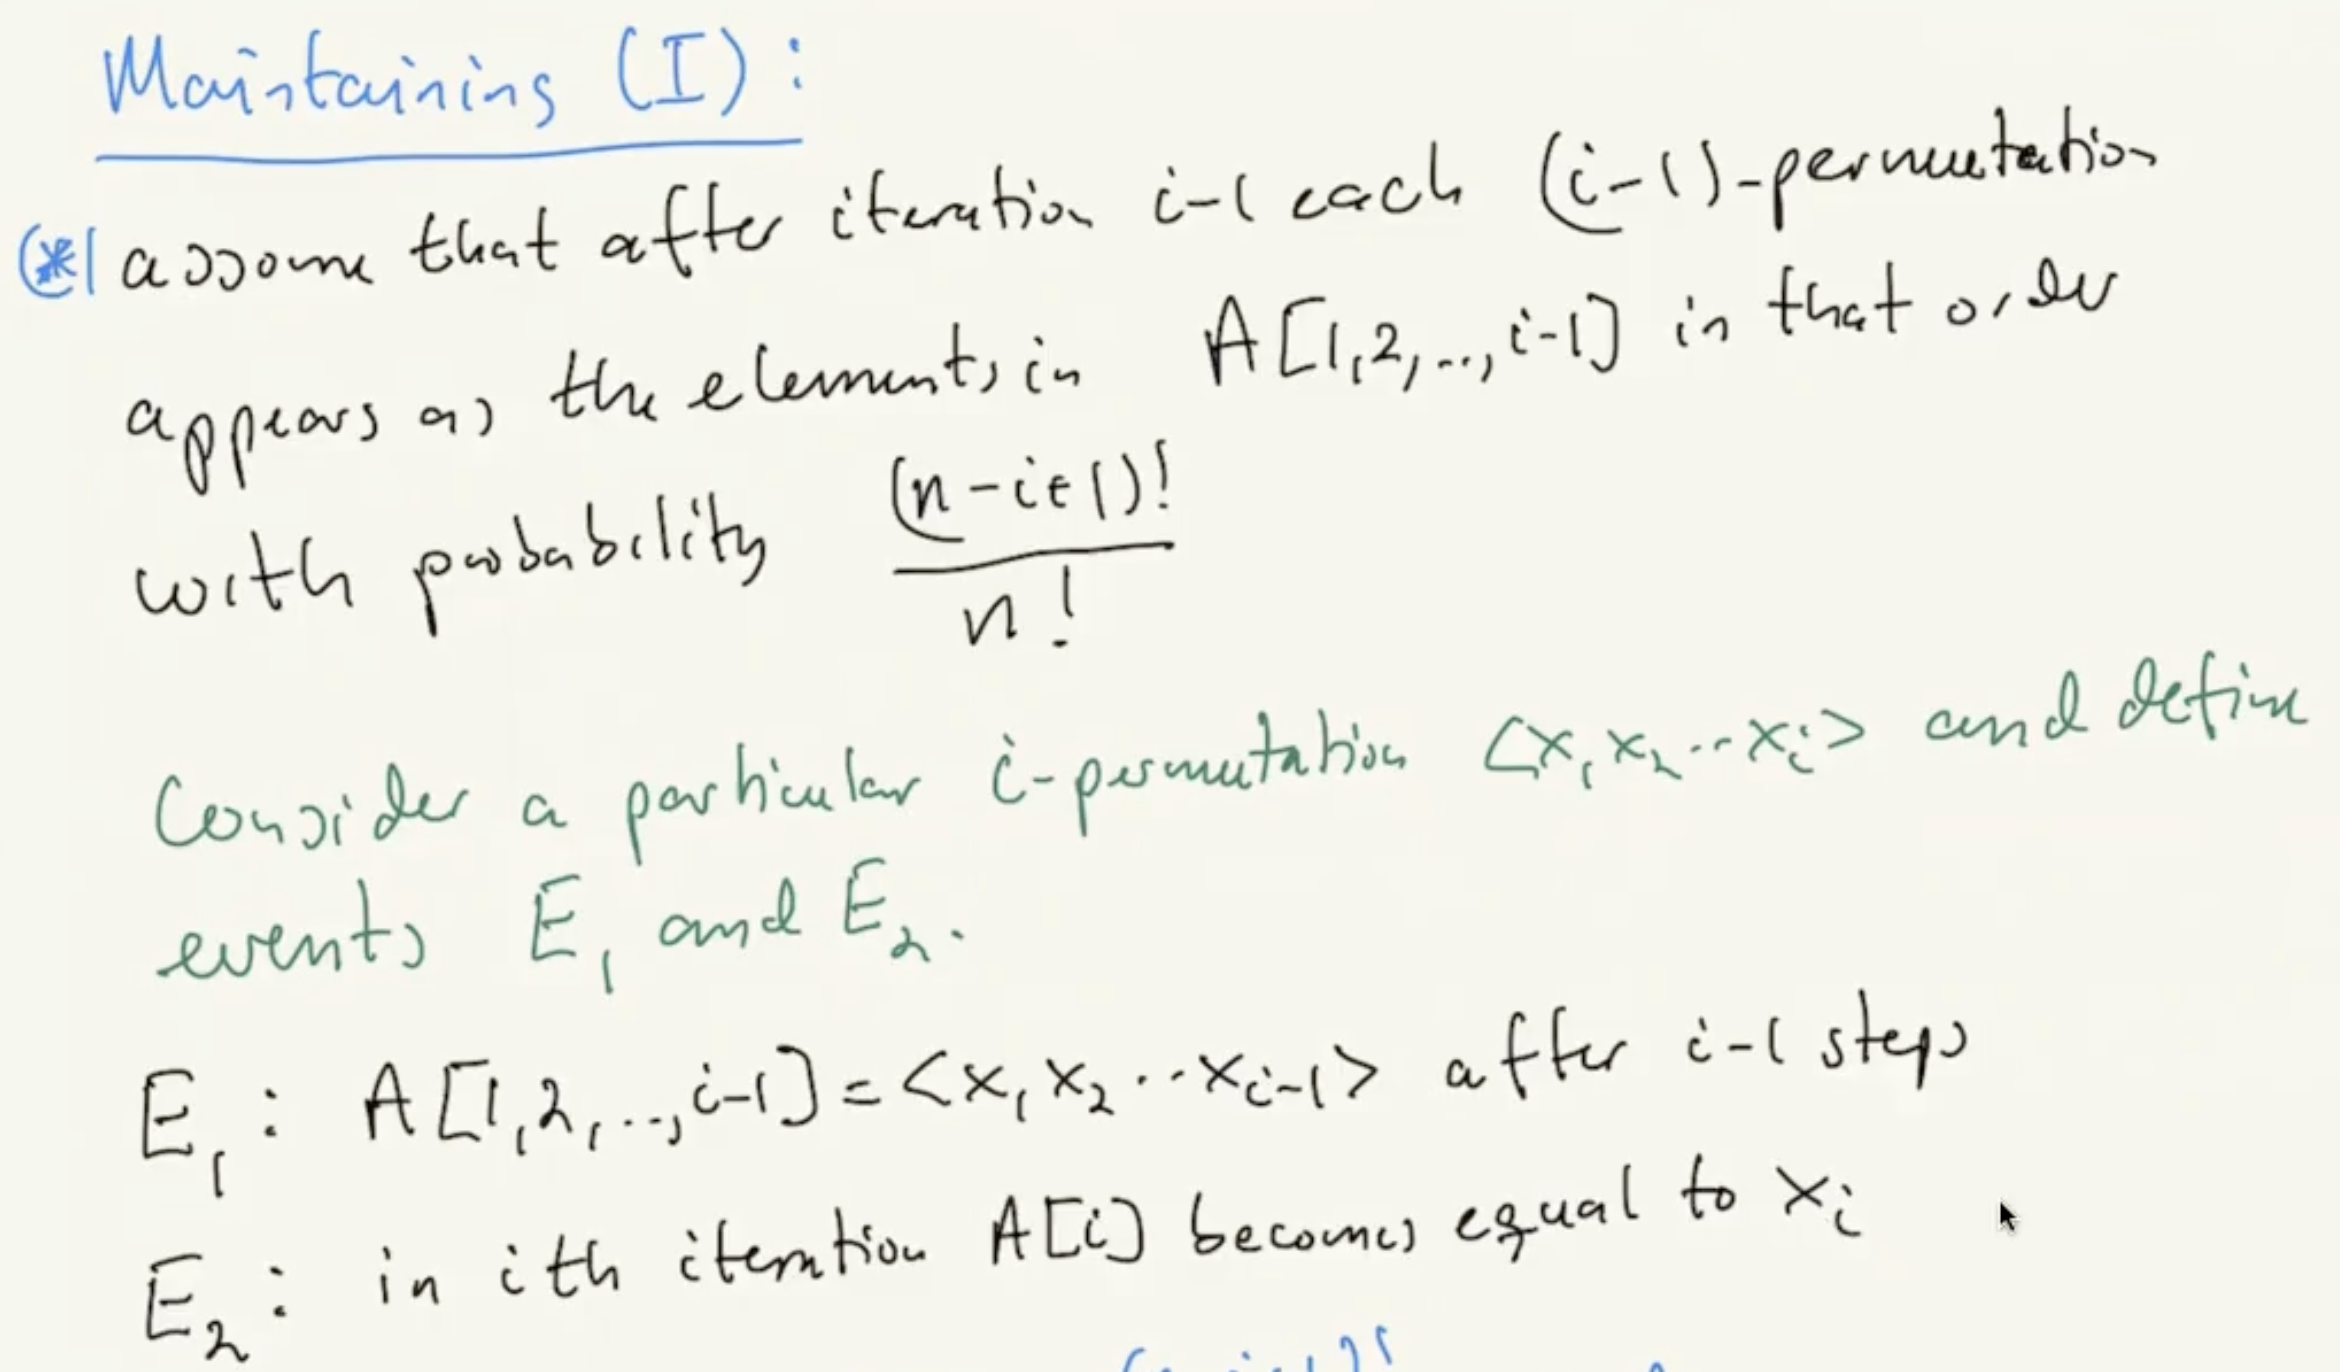 Maintaining (I):
(*) assume that after iteration i-1 each (i-1)-permutation
appears as the elements in A[1,2,..,i-1] in that order
with probability (n-i+1)!
n!
Consider a particular i-permutation <x₁x₂..xᵢ> and define
events E₁ and E₂.
E₁: A[1,2,..,i-1] = <x₁x₂..xᵢ₋₁> after i-1 steps
E₂: in ith iteration A[i] becomes equal to xᵢ